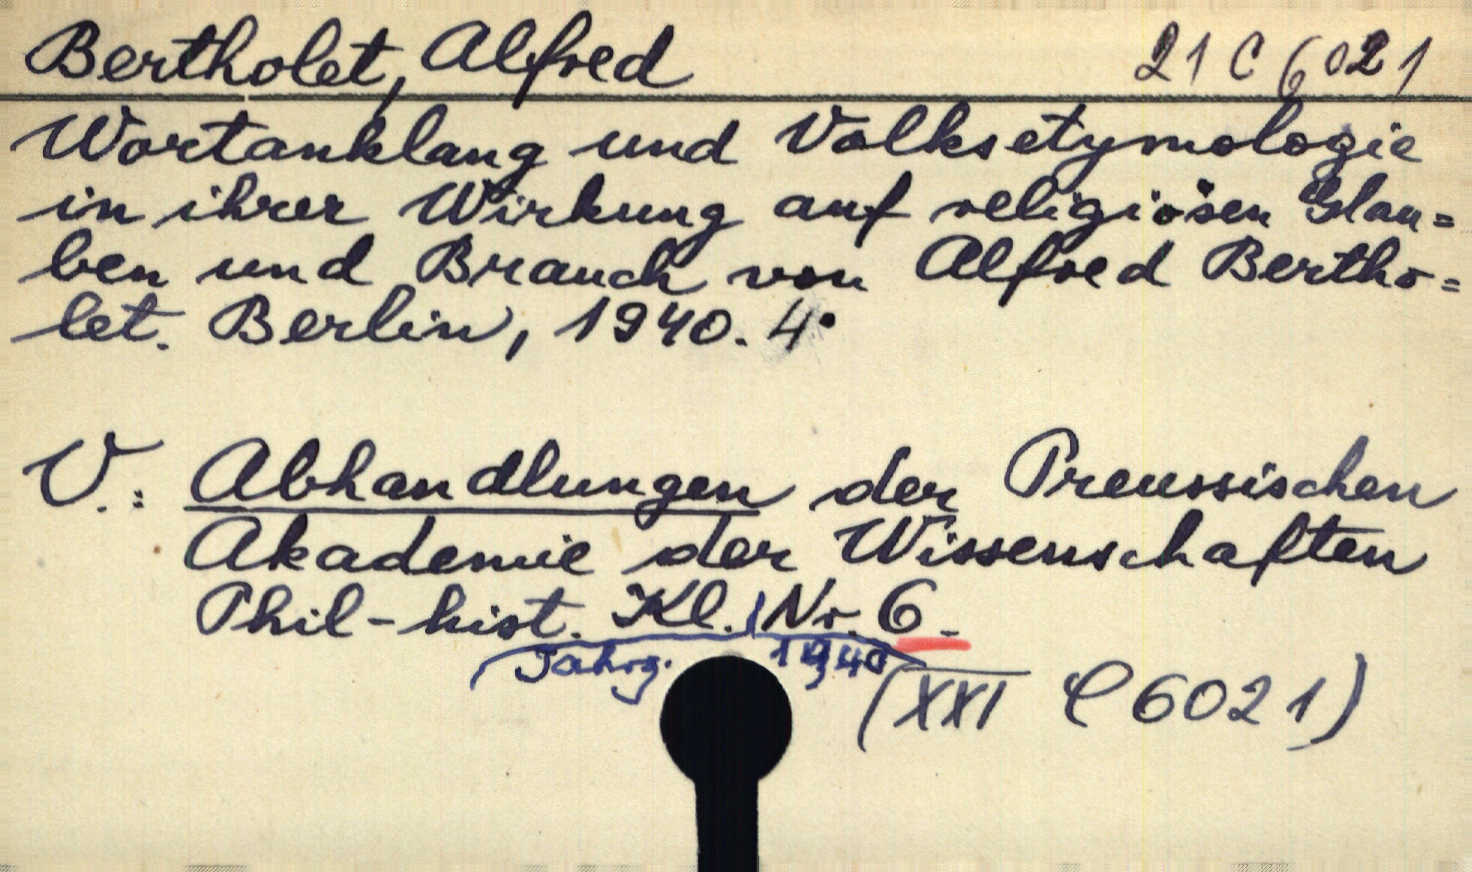 Bertholet, Alfred 21 C 6021
Wortanklang und Volksetymologie
in ihrer Wirkung auf religiösen Glau=
ben und Brauch von Alfred Bertho=
let. Berlin, 1940. 4°
V.: Abhandlungen der Preussischen
Akademie der Wissenschaften
Phil-hist. Kl. Nr. 6.
Jahrg. 1940
(XXI C 6021)